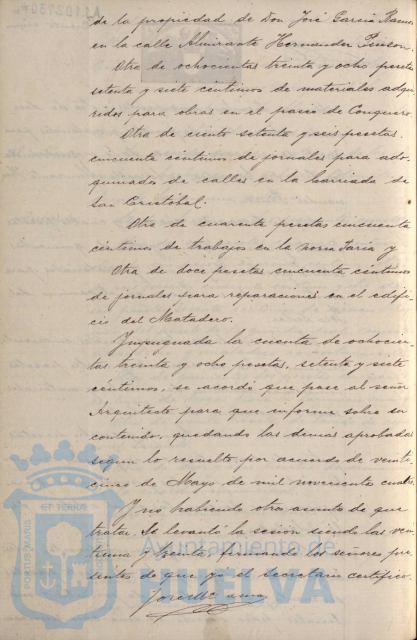 de la propiedad de Don José Garcia Ramos
en la calle Almirante Hernandez Pinzon.
Otra de ochocientas treinta y ocho pesetas
setenta y siete centimos de materiales adqui
ridos para obras en el paseo de Conquero.
Otra de ciento setenta y seis pesetas,
cincuenta centimos de jornales para ado-
quinados de calles en la barriada de
San Cristobal.
Otra de cuarenta pesetas cincuenta
centimos de trabajos en la noria y
Otra de doce pesetas cincuenta centimos
de jornales para reparaciones en el edifi
cio del Matadero.
Impugnada la cuenta de ochocien
tas treinta y ocho pesetas, setenta y siete
céntimos, se acordó que pase al señor
Arquitecto para que informe sobre su
contenido, quedando las demas aprobadas
segun lo resuelto por acuerdo de veinte
cinco de Mayo de mil novecientos cuatro.
Y no habiendo otro asunto de que
tratar, se levantó la sesion siendo las vein
tiuna y treinta, firmando los señores pre
sentes de que yo el secretario certifico.
PORTUS MARIS
ET TERRAE
Ayuntamiento de
HUELVA